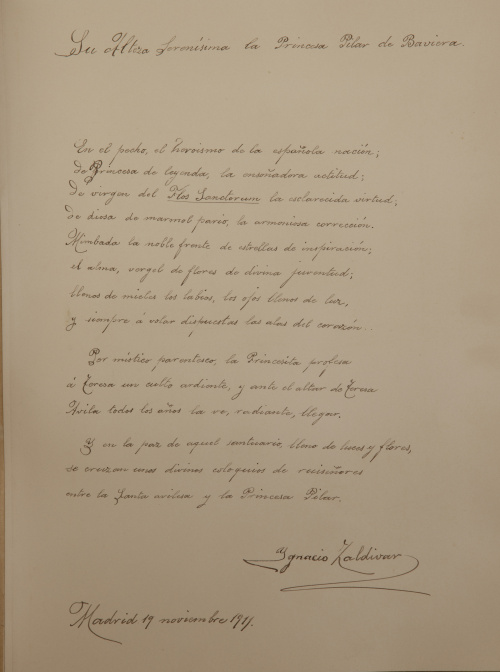 Su Alteza Serenísima la Princesa Pilar de Baviera.
En el pecho, el heroismo de la española nación;
de Princesa de leyenda, la ensoñadora actitud;
de virgen del Flos Sanctorum la esclarecida virtud;
de diosa de marmol pario, la armoniosa corrección.
Nimbada la noble frente de estrellas de inspiración;
el alma, vergel de flores de divina juventud;
llenos de mieles los labios, los ojos llenos de luz,
y siempre á volar dispuestas las alas del corazón..
Por místico parentesco, la Princesita profesa
á Teresa un culto ardiente, y ante el altar de Teresa
Avila todos los años la ve, radiante, llegar.
Y en la paz de aquel santuario, lleno de luces y flores,
se cruzan unos divinos coloquios de ruiseñores
entre la Santa avilesa y la Princesa Pilar.
Ignacio Zaldivar
Madrid 19 noviembre